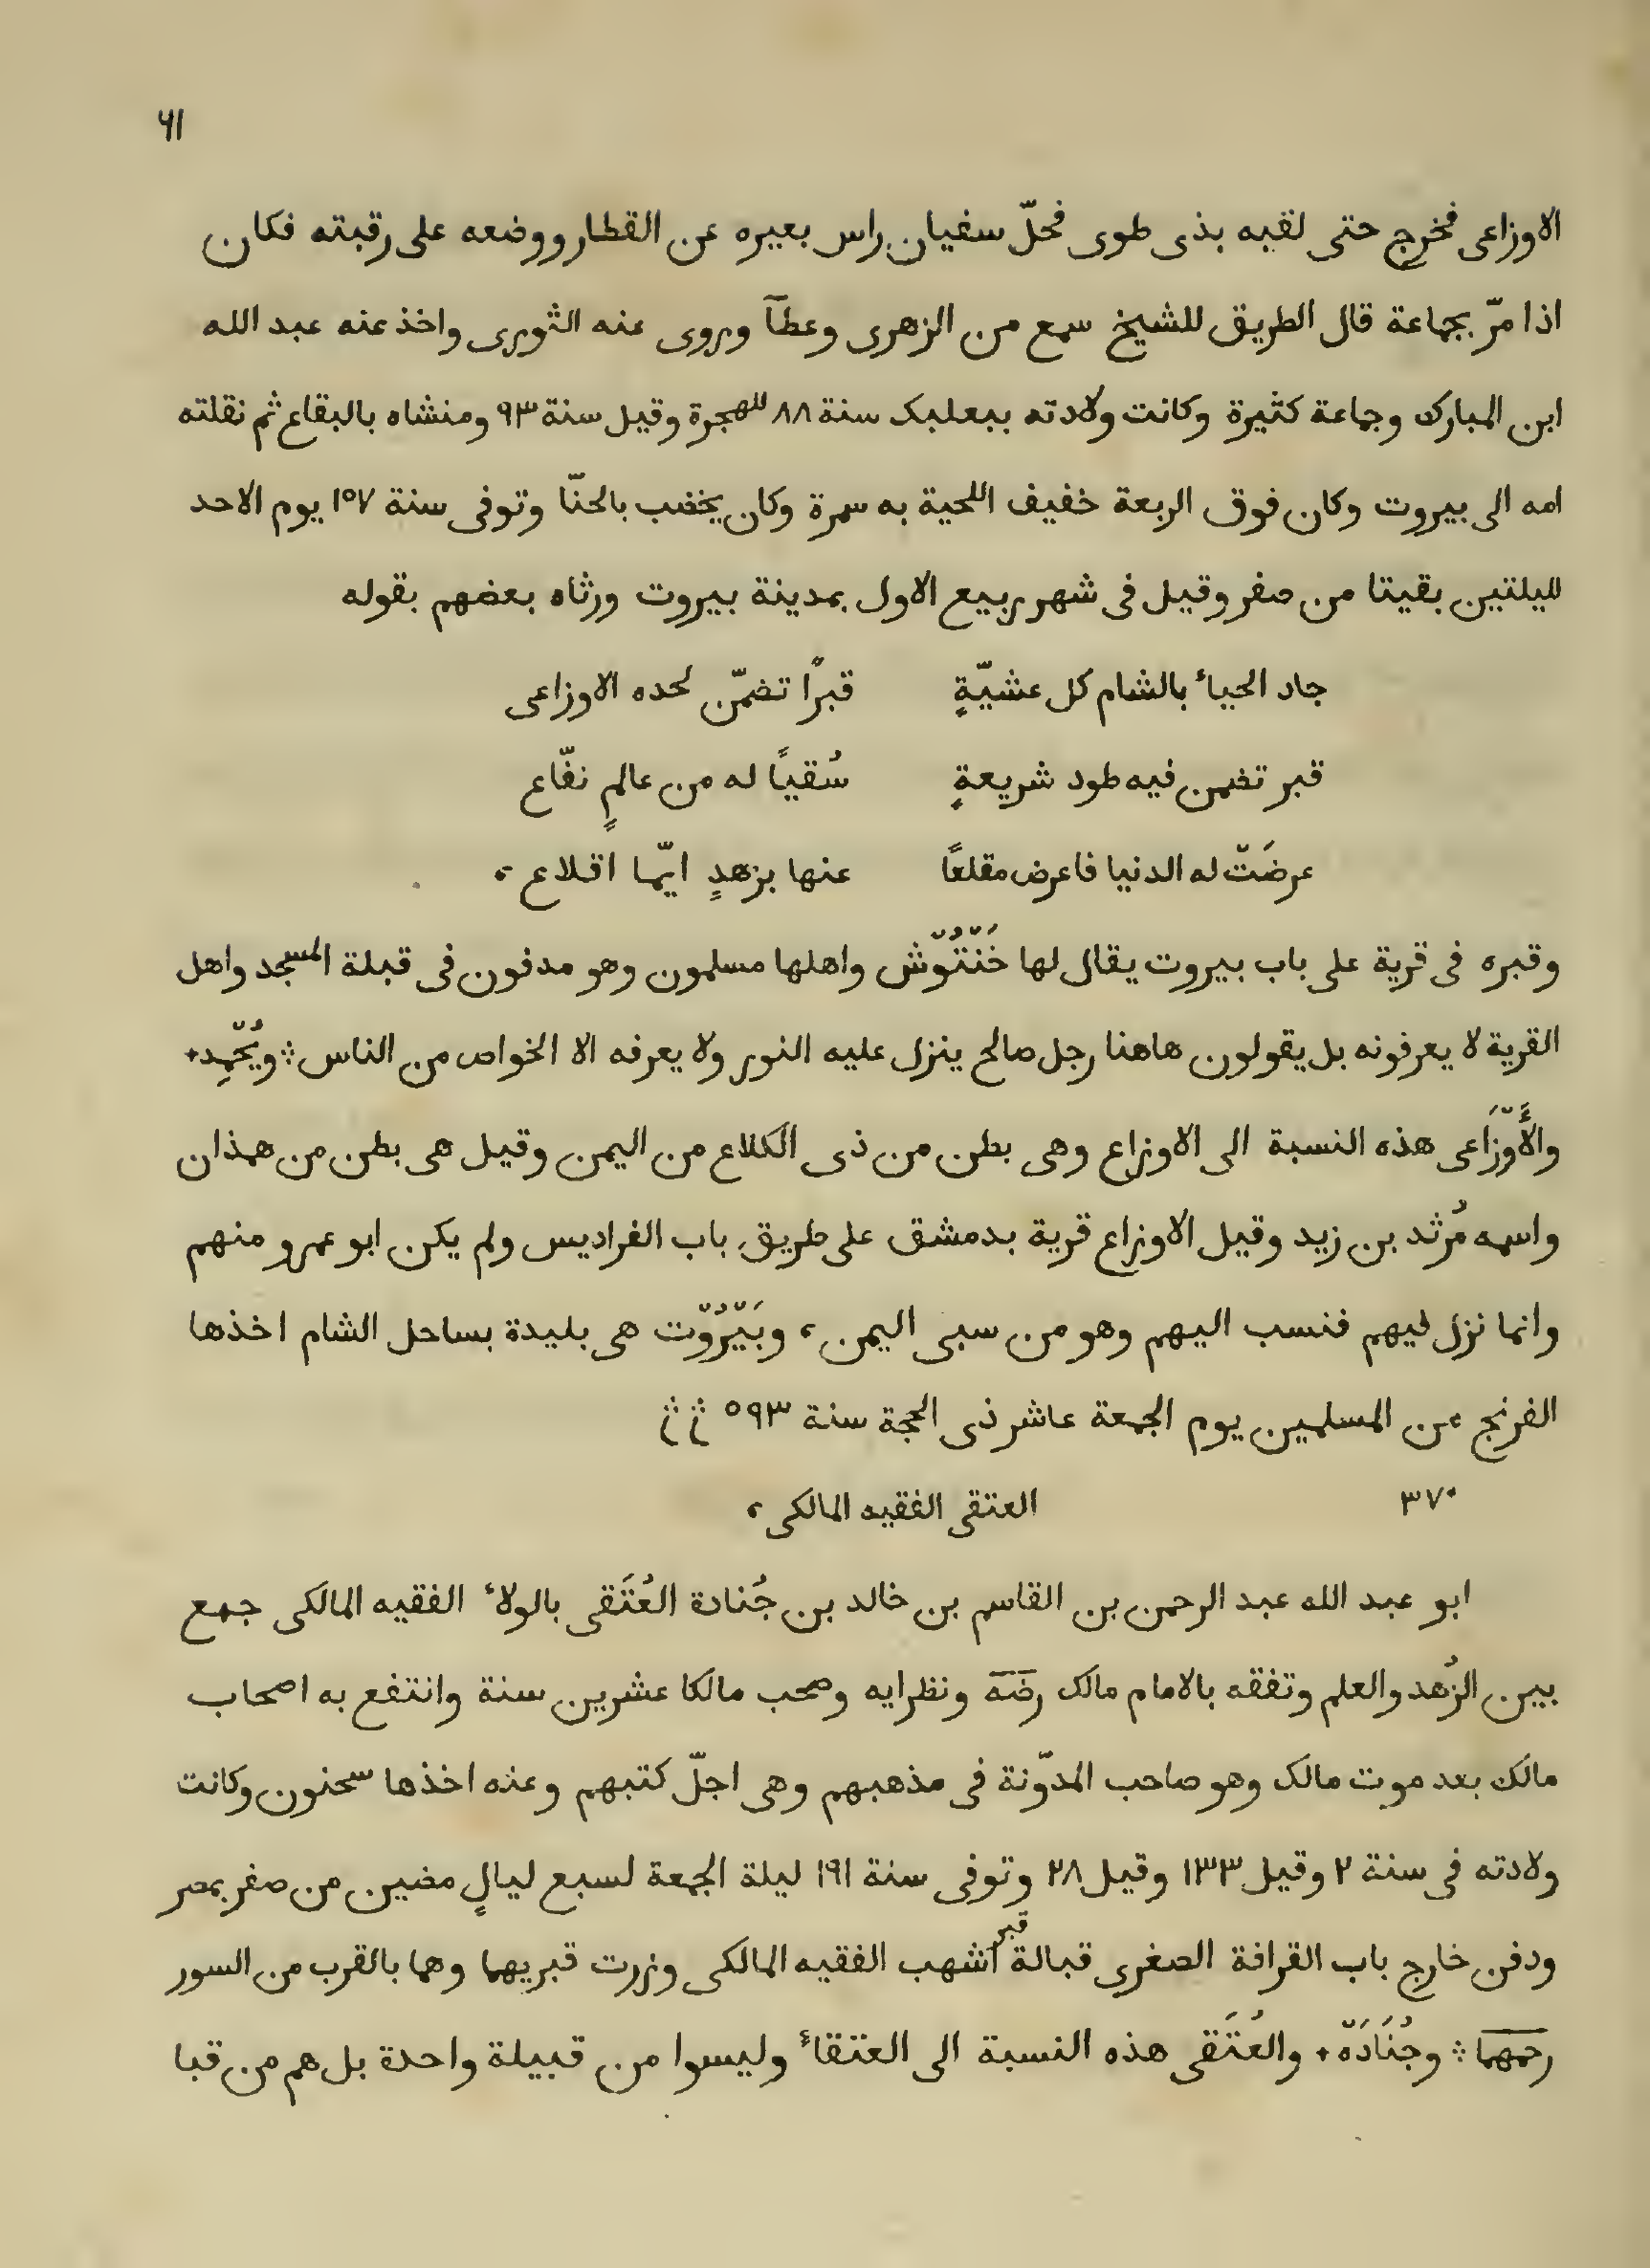 ٦١
الاوزاعى فخرج حتى لقيه بذى طوى فحلّ سفيان راس بعيره عن القطار ووضعه على رقبته فكان
اذا مرّ بجماعة قال الطريق للشيخ سمع من الزهرى وعطآ وروى عنه الثورى واخذ عنه عبد الله
ابن المبارك وجماعة كثيرة وكانت ولادته ببعلبك سنة ٨٨ للهجرة وقيل سنة ٩٣ ومنشاه بالبقاع ثم نقلته
امه الى بيروت وكان فوق الربعة خفيف اللحية به سمرة وكان يخضب بالحنّا وتوفى سنة ١٥٧ يوم الاحد
لليلتين بقيتا من صفر وقيل فى شهر ربيع الاول بمدينة بيروت ورثاه بعضهم بقوله
جاد الحياء بالشام كل عشيّةٍ قبرًا تضمّن لحده الاوزاعى
قبر تضمن فيه طود شريعةٍ سُقيًا له من عالمٍ نفّاع
عرضَتْ له الدنيا فاعرض مقلعًا عنها بزهدٍ ايّما اقلاع ،
وقبره فى قرية على باب بيروت يقال لها حَنْتُوْش واهلها مسلمون وهو مدفون فى قبلة المسجد واهل
القرية لا يعرفونه بل يقولون هاهنا رجل صالح ينزل عليه النور ولا يعرفه الا الخواص من الناس ؞ ويُحْمِد٠
والأَوْزَاعى هذه النسبة الى الاوزاع وهى بطن من ذى الكلاع من اليمن وقيل هى بطن من همذان
واسمه مُرثد بن زيد وقيل الاوزاع قرية بدمشق على طريق باب الفراديس ولم يكن ابو عمرو منهم
وانما نزل فيهم فنسب اليهم وهو من سبى اليمن ، وبَيْرُوْت هى بليدة بساحل الشام اخذها
الفرنج من المسلمين يوم الجمعة عاشر ذى الحجة سنة ٥٩٣
٣٧٠ العتقى الفقيه المالكى ،
ابو عبد الله عبد الرحمن بن القاسم بن خالد بن جُنادة العُتَقى بالولاء الفقيه المالكى جمع
بين الزُهد والعلم وتفقه بالامام مالك رضَه ونظرايه وصحب مالكا عشرين سنة وانتفع به اصحاب
مالك بعد موت مالك وهو صاحب المدوّنة فى مذهبهم وهى اجلّ كتبهم وعنه اخذها سحنون وكانت
ولادته فى سنة ٢ وقيل ١٣٣ وقيل ٢٨ وتوفى سنة ١٩١ ليلة الجمعة لسبع ليالٍ مضين من صفر بمصر
ودفن خارج باب القرافة الصغرى قبالة قبر اشهب الفقيه المالكى وزرت قبريهما وهما بالقرب من السور
رحمهما ؞ وجُنَادَهْ ٠ والعُتَقى هذه النسبة الى العتقاء وليسوا من قبيلة واحدة بل هم من قبا